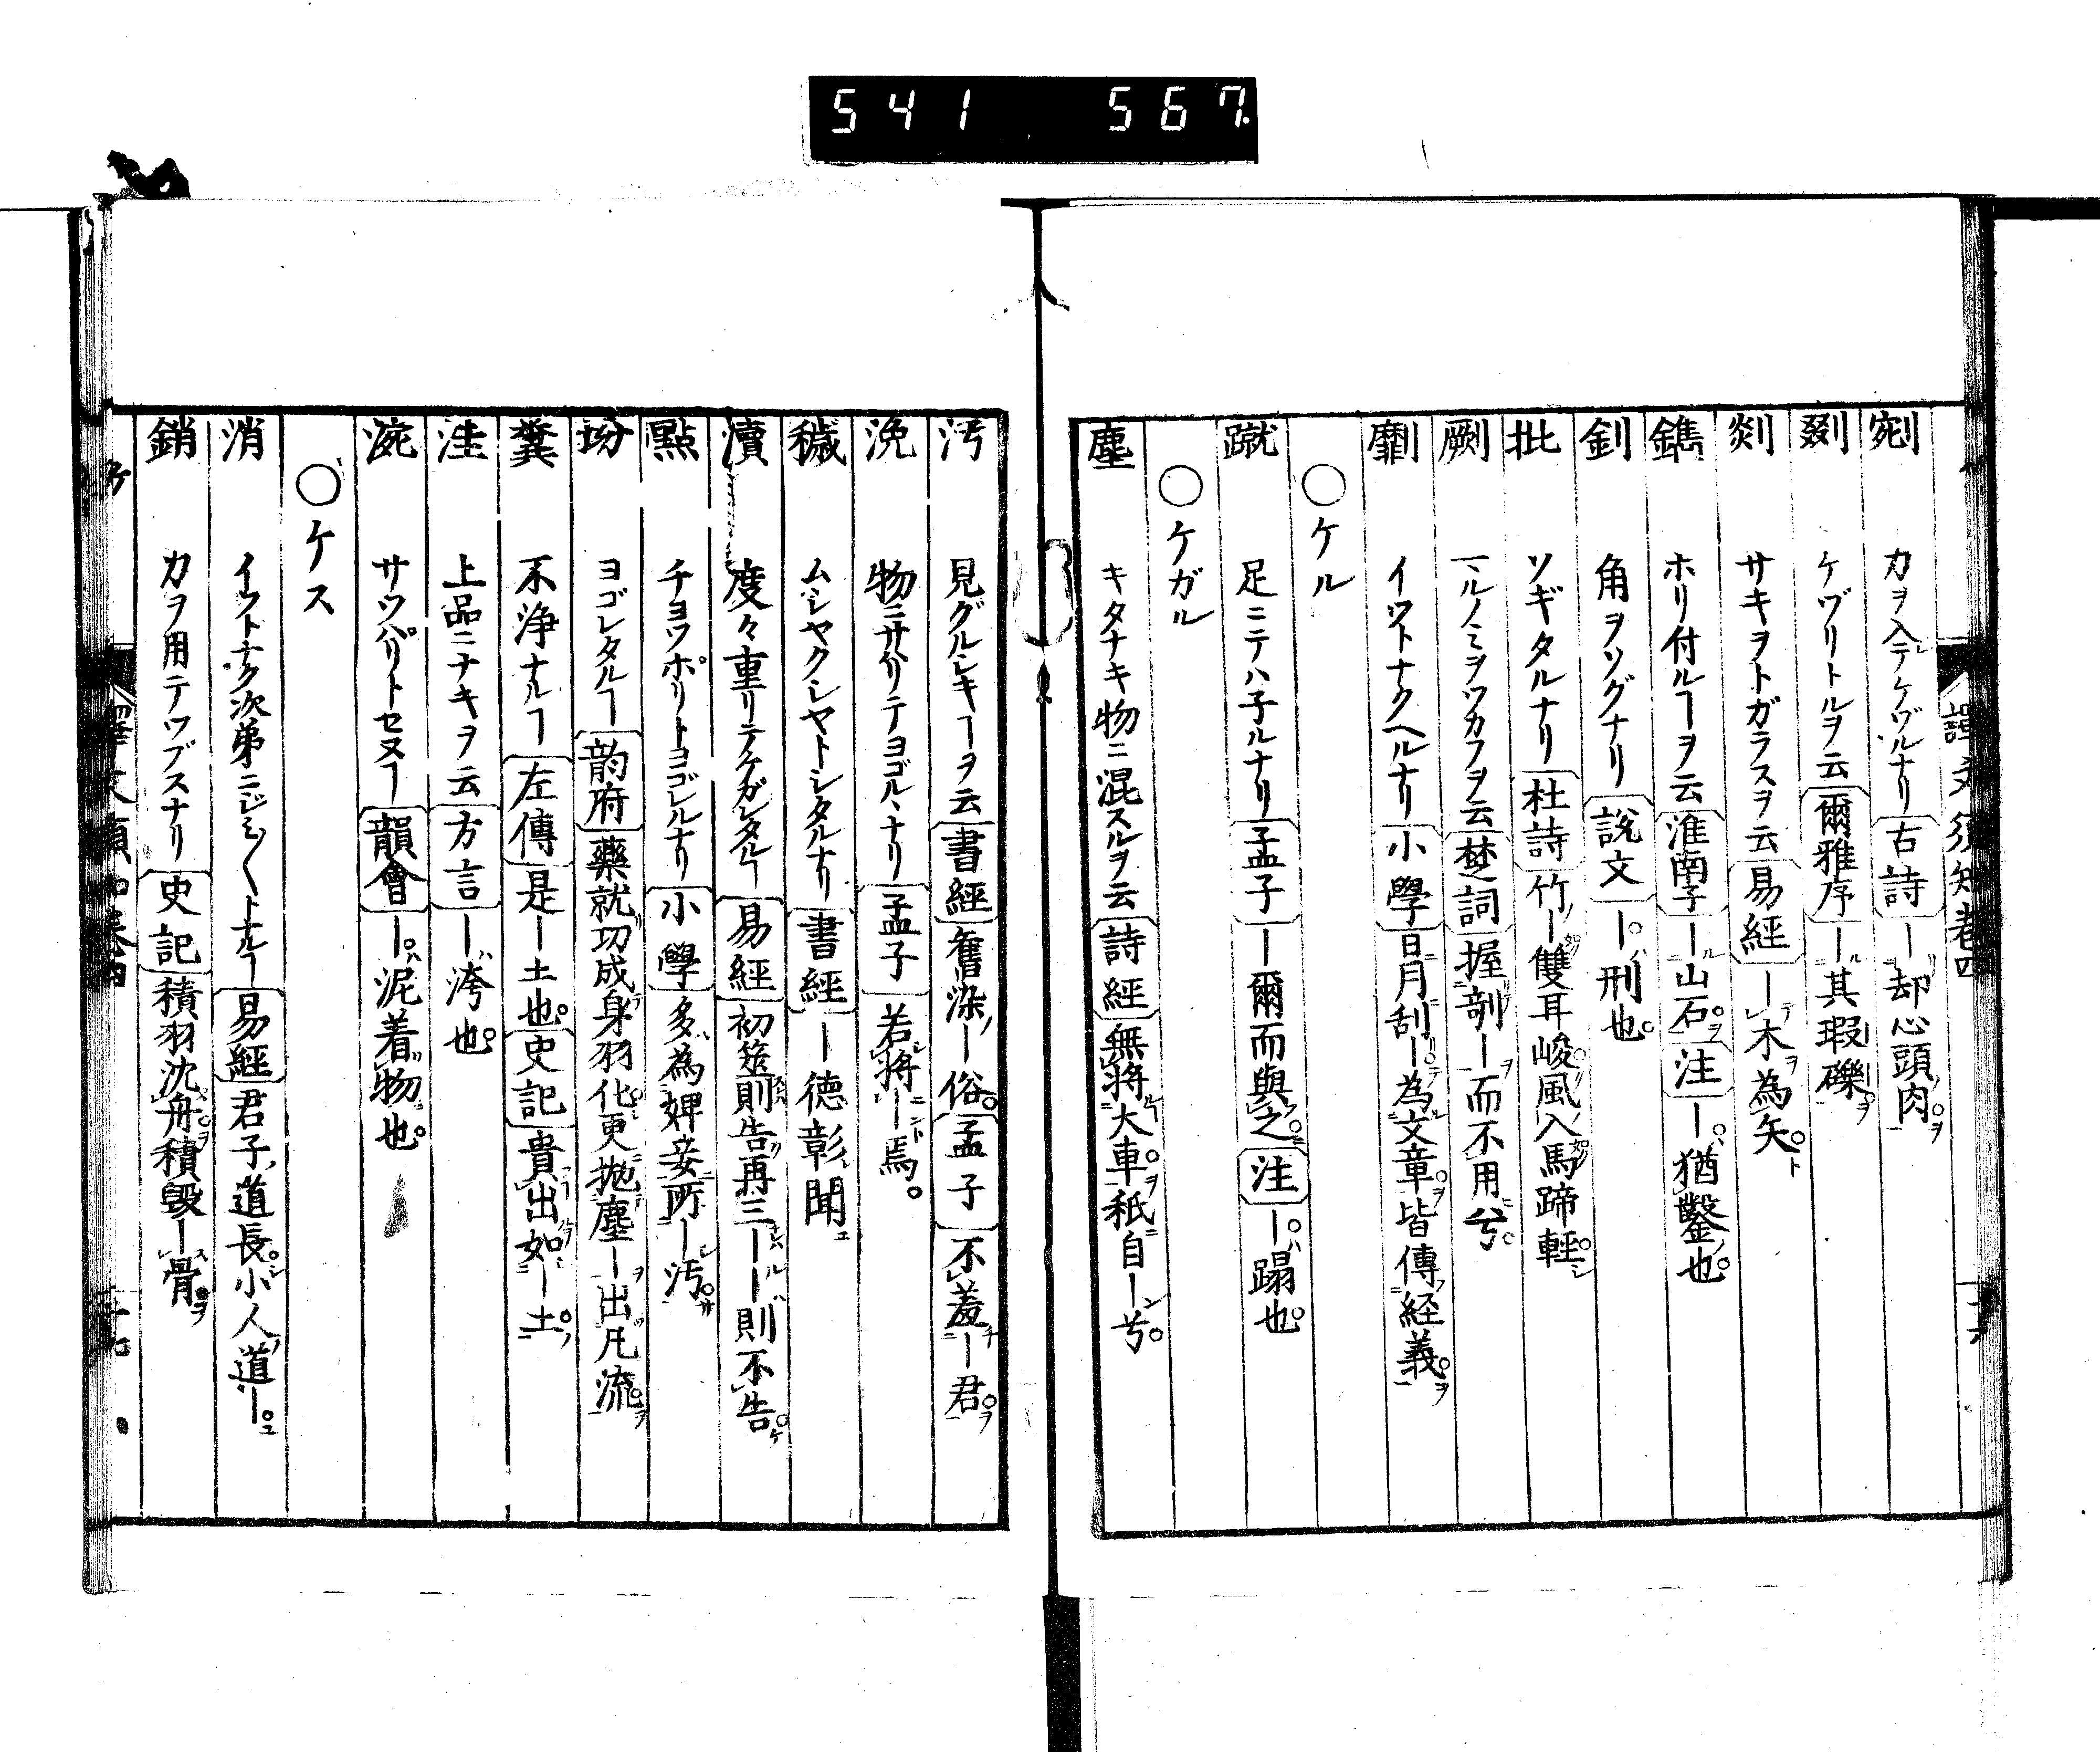 541 567
譯文須知卷四
剜 力ヲ入テケヅルナリ 古詩 ー却心頭肉ヲ
剟 ケヅリトルヲ云 爾雅序 ール其瑕礫ヲ
剡 サキヲトガラスヲ云 易經 ーテ木ヲ為矢ト
鐫 ホリ付ルヿヲ云 淮南子 ール山石ヲ 注 ーハ猶鑿ノ也
釗 角ヲソグナリ 說文 ーハ刑也
批 ソギタルナリ 杜詩 竹ー雙耳峻風入馬蹄輕シ
劂 ノミヲツカフヲ云 楚詞 握剞ーヲ而不用兮
劘 イツトナクヘルナリ 小學 日月刮ー為文章ヲ皆傳経義ヲ
○ケル
蹴 足ニテハ子ルナリ 孟子 ー爾而與之 注 ーハ蹋也
○ケガル
塵 キタナキ物ニ混スルヲ云 詩經 無將大車ヲ秖自ーン兮
汚 見グルシキヿヲ云 書經 舊染ノー俗 孟子 不羞チー君ヲ
浼 物ニサハリテヨゴルヽナリ 孟子 若將ー焉
穢 ムシヤクシヤトシタルナリ 書經 ー德彰聞ユ
瀆 度々重リテケガレタルヿ 易經 初筮則告再三ーー則不告ケ
點 チヨツポリトヨゴレルナリ 小學 多ハ為婢妾所ー汚
坋 ヨゴレタルヿ 韵府 藥就功成身羽化更拋塵ーヲ出凡流ヲ
糞 不浄ナルヿ 左傳 是ー土也 史記 貴出如ー土
洼 上品ニナキヲ云 方言 ーハ洿也
涴 サツパリトセヌヿ 韻會 ーハ泥着物也
○ケス
消 イツトナク次第ニジミ〱トナルヿ 易經 君子道長小人道ー
銷 力ヲ用テツブスナリ 史記 積羽沈舟ヲ積毀ース骨ヲ
ケ 譯文須知卷四 十七